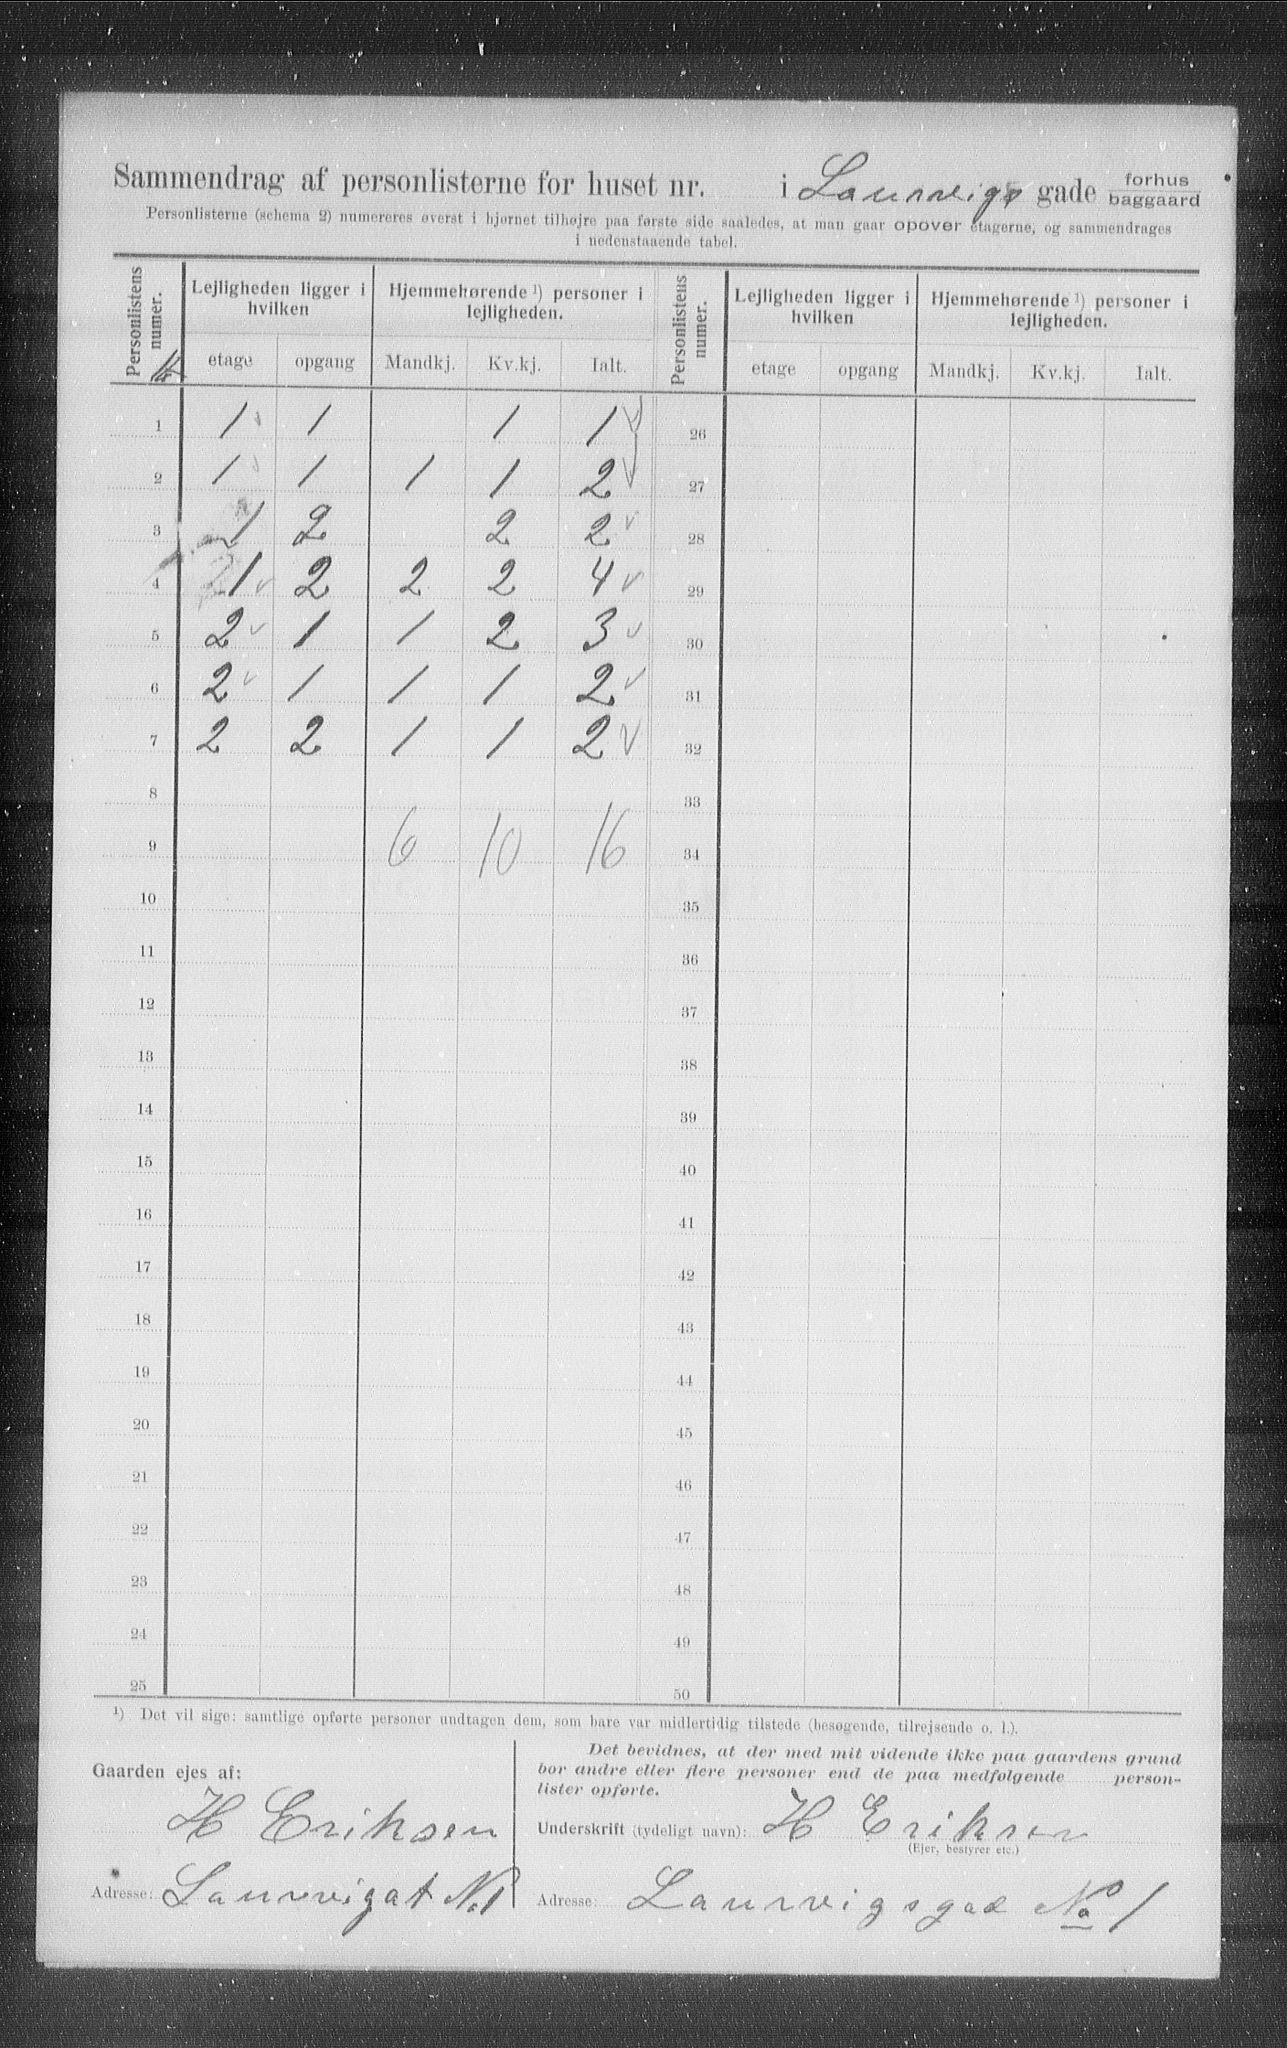 Sammendrag af personlisterne for huset nr. i Laurvigs gade forhus
baggaard
Personlisterne (schema 2) numereres øverst i hjørnet tilhøjre paa første side saaledes, at man gaar opover etagerne, og sammendrages
i nedenstaaende tabel.
Personlistens numer. Lejligheden ligger i hvilken Hjemmehørende ¹) personer i lejligheden. Personlistens numer. Lejligheden ligger i hvilken Hjemmehørende ¹) personer i lejligheden.
etage opgang Mandkj. Kv.kj. Ialt. etage opgang Mandkj. Kv.kj. Ialt.
1 1 1 1 1 26
2 1 1 1 1 2 27
3 1 2 2 2 28
4 1 2 2 2 4 29
5 2 1 1 2 3 30
6 2 1 1 1 2 31
7 2 2 1 1 2 32
8 33
9 6 10 16 34
10 35
11 36
12 37
13 38
14 39
15 40
16 41
17 42
18 43
19 44
20 45
21 46
22 47
23 48
24 49
25 50
¹) Det vil sige: samtlige opførte personer undtagen dem, som bare var midlertidig tilstede (besøgende, tilrejsende o. l.).
Gaarden ejes af:
H Eriksen
Adresse: Laurvigat No 1
Det bevidnes, at der med mit vidende ikke paa gaardens grund
bor andre eller flere personer end de paa medfølgende person-
lister opførte.
Underskrift (tydeligt navn): H Eriksen
(Ejer, bestyrer etc.)
Adresse: Laurvigsgad No 1